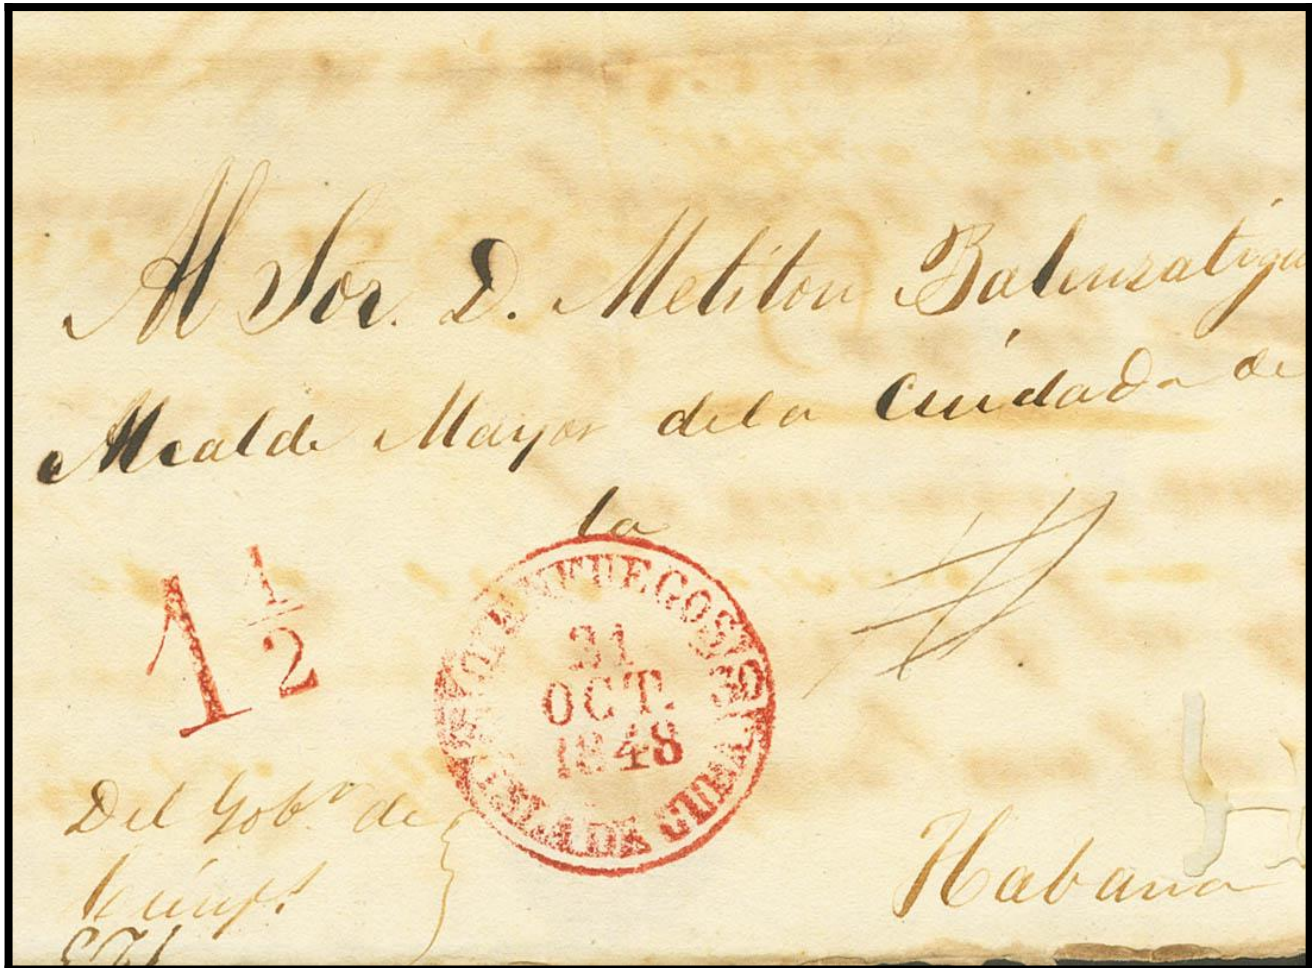 Al Sor. D. Meliton Balenzategui
Alcalde Mayor dela Ciudad de
la
1 1/2
CIENFUEGOS
31
OCT.
1848
ISLA DE CUBA
Del Gobr. de
Habana